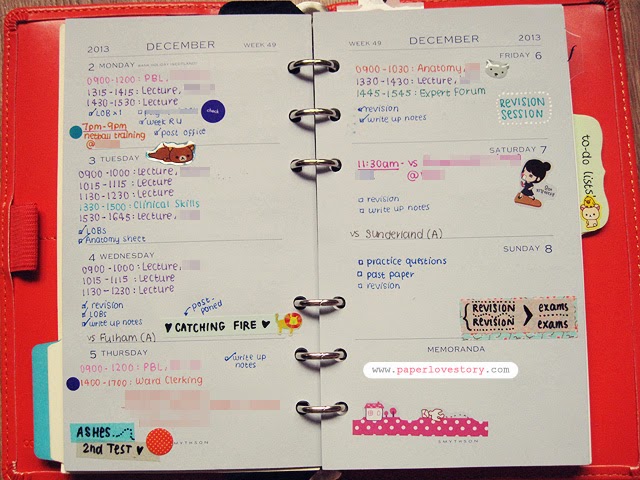 2013 DECEMBER WEEK 49
2 MONDAY BANK HOLIDAY (SCOTLAND)
0900-1200: PBL,
1315-1415: Lecture,
1430-1530: Lecture
LOB x1
week R U
check
7pm-9pm
netball training
@
post office
3 TUESDAY
0900-1000: Lecture,
1015-1115: Lecture
1130-1230: Lecture
1330-1500: Clinical Skills
1530-1645: Lecture,
LOBS
Anatomy sheet
4 WEDNESDAY
0900-1000: Lecture,
1015-1115: Lecture
1130-1230: Lecture
revision
LOBs
write up notes
post-
poned
♥ CATCHING FIRE ♥
vs Fulham (A)
5 THURSDAY
write up
notes
0900-1200: PBL,
1400-1700: Ward Clerking
ASHES
2nd TEST ♥
SMYTHSON
WEEK 49 DECEMBER 2013
FRIDAY 6
0900-1030: Anatomy,
1330-1430: Lecture,
1445-1545: Expert forum
revision
write up notes
REVISION
SESSION
SATURDAY 7
11:30am - vs
@
revision
write up notes
vs Sunderland (A)
to-do lists!
SUNDAY 8
practice questions
past paper
revision
REVISION > exams
REVISION exams
MEMORANDA
www.paperlovestory.com
SMYTHSON